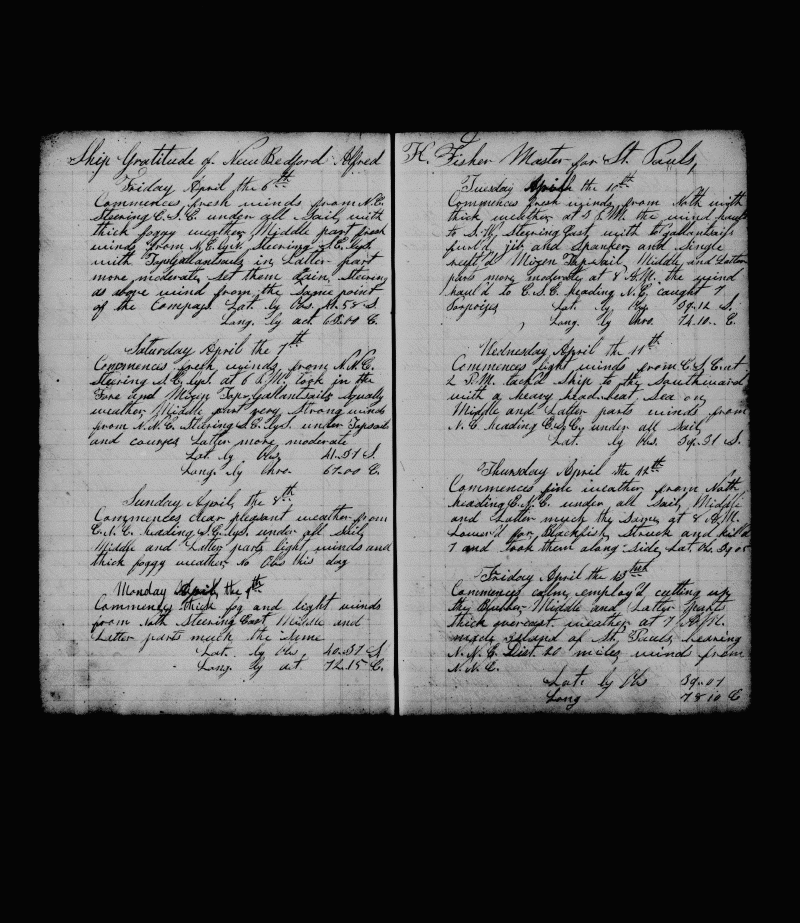 Ship Gratitude of New Bedford Alfred
Friday April the 6th
Commences fresh winds from N.E.
Steering E.S.E. under all Sail with
thick foggy weather Middle part fresh
winds from N.E. Steering S.E.
with Topgallantsails in, Latter part
more moderate set them again, Steering
as above wind from the Same point
of the Compass. Lat. by Obs. 41.58 S
Long. by act. 65.00 E.
Saturday April the 7th
Commences fresh winds from N.N.E.
Steering S.E. at 6 P.M. took in the
Fore and Mizen Topgallantsails Squally
weather, Middle part very strong winds
from N.N.E. Steering S.E. under Topsails
and courses Latter more moderate
Lat. by Obs. 41.31 S.
Long. by Chro. 67.00 E.
Sunday April, the 8th
Commences clear pleasant weather from
E.N.E. heading S.E. under all Sail
Middle and Latter parts light winds and
thick foggy weather no Obs this day
Monday April, the 9th
Commences thick fog and light winds
from Noth Steering East Middle and
Latter parts much the Same
Lat. by Obs, 40.37 S
Long. by act 72.15 E.
K. Fisher Master for St. Pauls,
Tuesday April the 10th
Commences fresh winds from Noth with
thick weather at 3 P.M. the wind
to S.W. Steering East, with topgallantsails
furl'd, jib and Spanker, and Single
reef'd Mizen Topsail, Middle and Latter
parts more moderate at 8 A.M. the wind
haul'd to E.S.E. heading N.E. caught 7
Porpoises Lat. by Obs. 39.12 S.
Long. by Chro. 74.10 E.
Wednesday April the 11th
Commences light winds from E.S.E. at
2 P.M. tack'd Ship to the Southward
with a heavy head beat Sea on
Middle and Latter parts winds from
N.E. heading under all Sail
Lat. by Obs. 39.31 S.
Thursday April the 12th
Commences fine weather from Noth
heading E.N.E. under all Sail, Middle
and Latter much the Same at 8 A.M.
Lower'd for Blackfish, Struck and kill'd
7 and took them along Side, Lat. Obs. 39.05
Friday April the 13th
Commences calm, employ'd cutting up
the Blubber Middle and Latter parts
thick overcast weather at 7 A.M.
island of St. Pauls bearing
N.N.E. Dist 20 miles wind from
N.N.E.
Lat. by Obs 39.07
Long 78 10 E